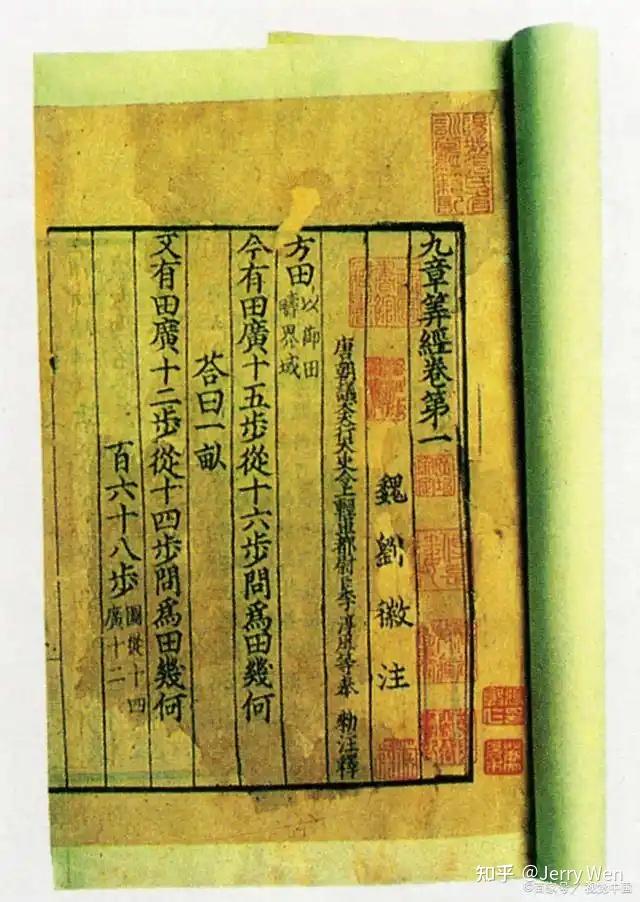 九章筭經卷第一
魏劉徽注
唐朝議大夫行太史令上輕車都尉臣李淳風等奉 勑注釋
方田 以御田疇界域
今有田廣十五歩從十六歩問爲田幾何
荅曰一畝
又有田廣十二歩從十四歩問爲田幾何
百六十八歩 圖從十四廣十二
知乎 @Jerry Wen
©百家号 / 视觉中国